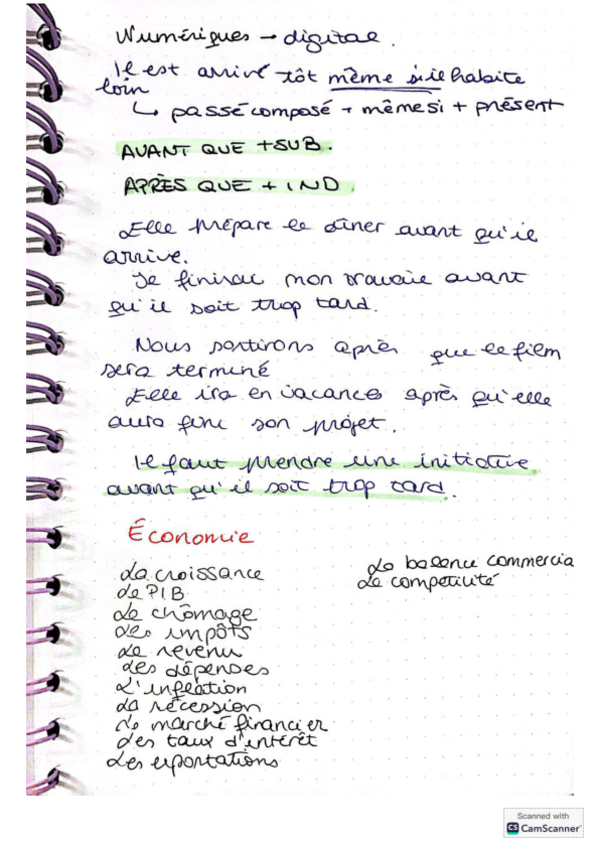 Numériques → digitae.
Il est arrivé tôt même si il habite
loin
↳ passé composé + même si + présent
AVANT QUE + SUB.
APRÈS QUE + IND.
Elle prépare le dîner avant qu'il
arrive.
Je finirai mon travaie avant
qu'il soit trop tard.
Nous sortirons après que le film
sera terminé
Elle ira en vacances après qu'elle
aura fini son projet.
Il faut prendre une initiative
avant qu'il soit trop tard.
Économie
La croissance
Le PIB
Le chômage
Les impôts
Le revenu
Les dépenses
L'inflation
La récession
Le marché financier
Les taux d'intérêt
Les exportations
La balence commercia
La competivité
Scanned with
CS CamScanner